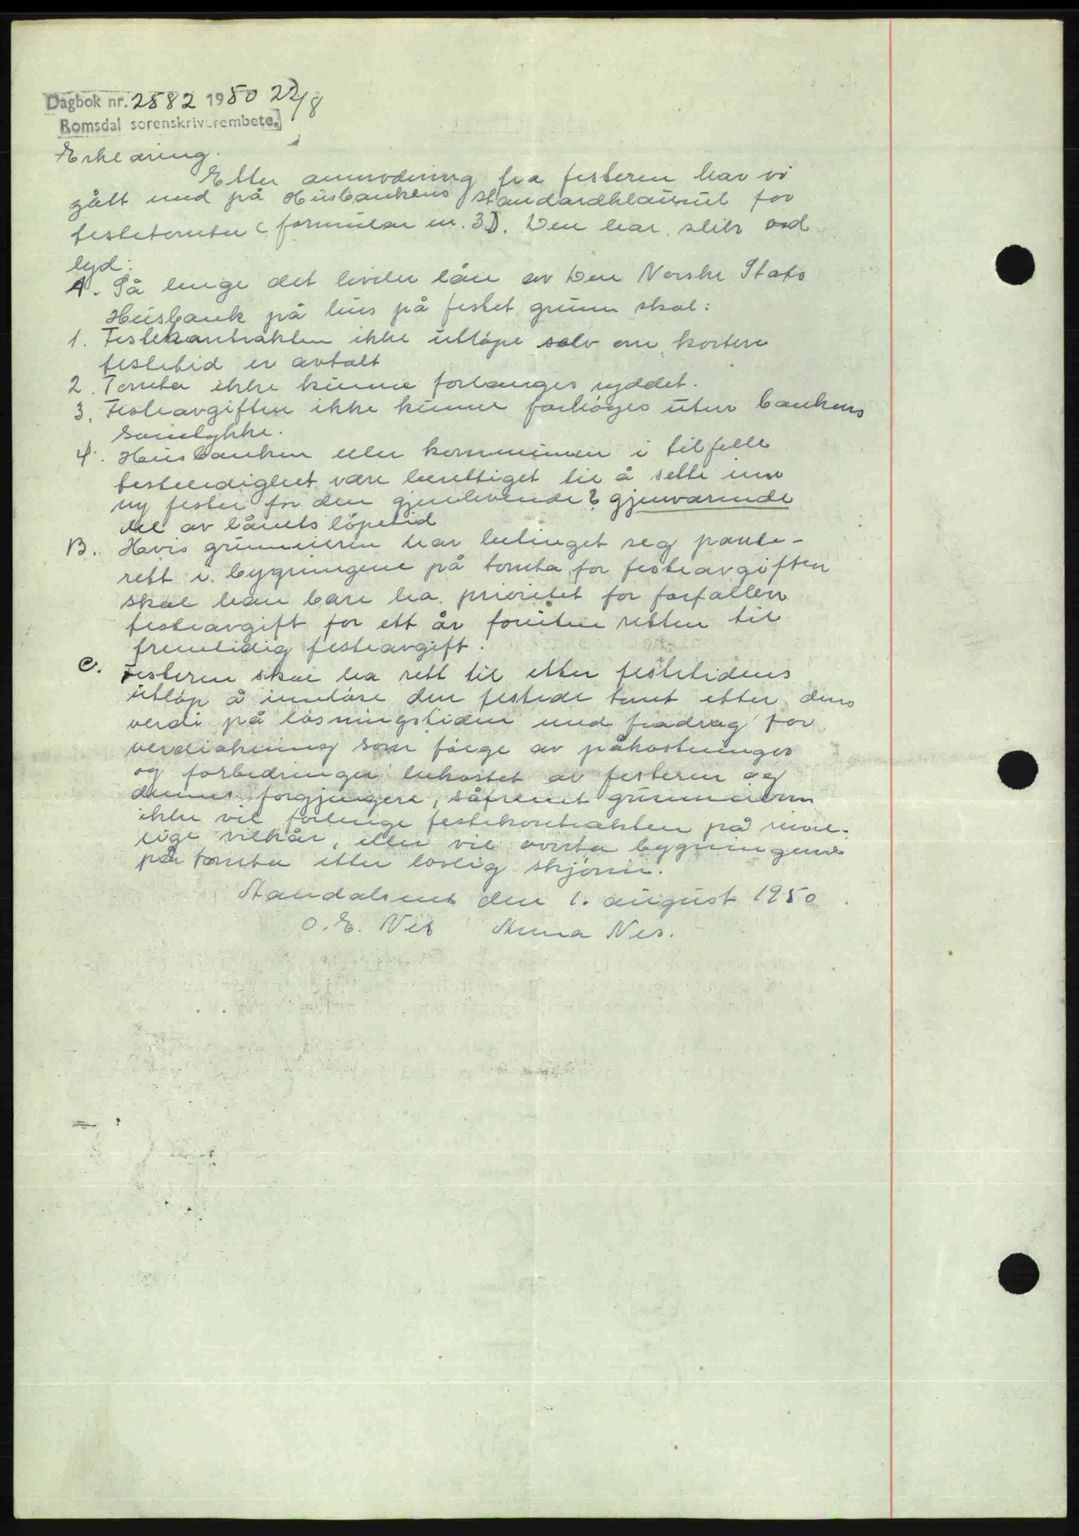 Dagbok nr. 2582 1950 22/8
Romsdal sorenskriverembete.
Erklæring.
Etter anmodning fra festeren har vi
gått med på Husbankens standardklausul for
festetomter (formular nr. 3D). Den har slik ord
lyd:
A. Så lenge det hviler lån av Den Norske Stats
Husbank på hus på festet grunn skal:
1. Festekontrakten ikke utløpe selv om kortere
festetid er avtalt
2. Tomta ikke kunne forlanges ryddet.
3. Festeavgiften ikke kunne forhøges uten bankens
samtykke.
4. Husbanken eller kommunen i tilfelle
festeledighet være berettiget til å sette inn
ny fester for den gjenlevende ? gjenværende
del av lånets löpetid
B. Hvis grunneieren har betinget seg pante-
rett i bygningene på tomta for festeavgiften
skal han bare ha prioritet for forfallen
festeavgift for ett år foruten retten til
fremtidig festeavgift.
C. Festeren skal ha rett til etter festetidens
utløp å innløse den festede tomt etter dens
verdi på løsningstiden med fradrag for
verdiøkning som følge av påkostninger
og forbedringer bekostet av festeren og
dennes forgjengere, såfremt grunneieren
ikke vil forlenge festekontrakten på rime-
lige vilkår, eller vil overta bygningene
på tomta etter lovlig skjønn.
Åandalsnes den 1. august 1950.
O. E. Nes Anna Nes.